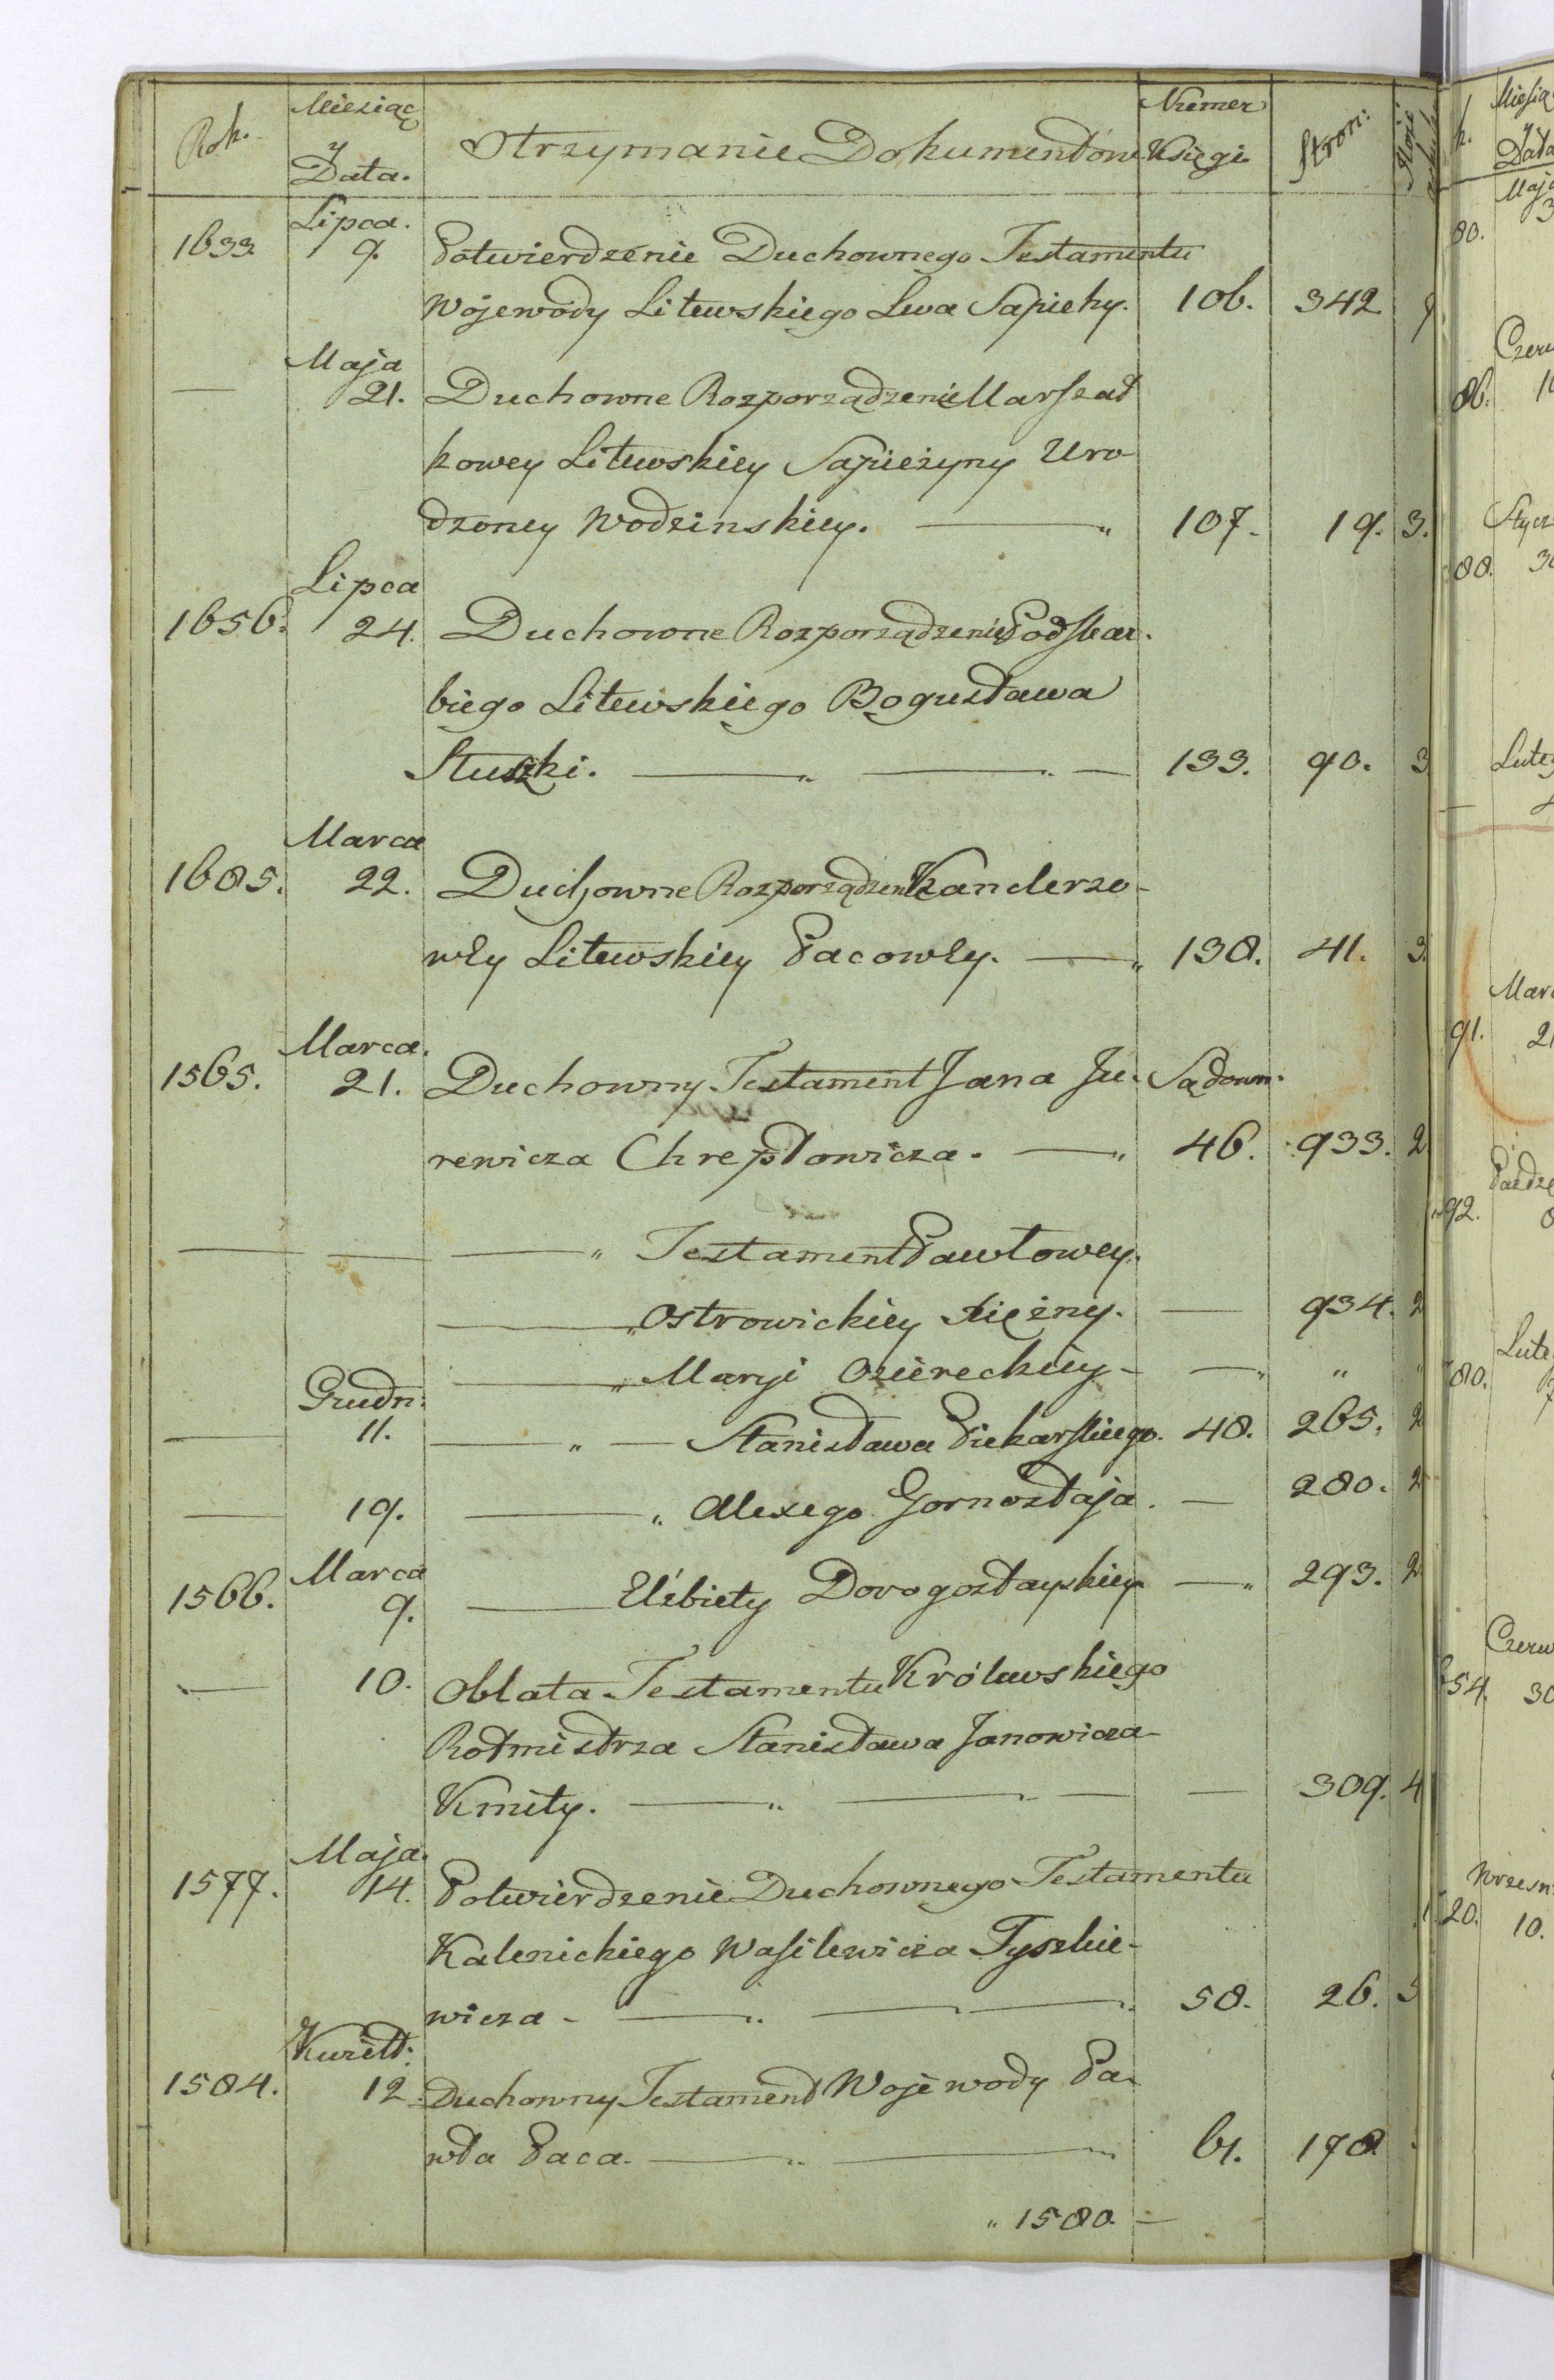 Rok. Miesiąc y Data. Otrzymanie Dokumentów Numer Księgi Stron:
1633. Lipca. 9. Potwierdzenie Duchownego Testamentu
Wojewody Litewskiego Lwa Sapiehy. 106. 342
— Maja 21. Duchowne Rozporządzenie Marszał
kowey Litewskiey Sapieżyny Uro-
dzoney Wodzinskiey. — " 107. 19. 3.
1656. Lipca 24. Duchowne Rozporządzenie Podskar-
biego Litewskiego Bogusława
Słuszki. — " — " — 133. 90. 3
1685. Marca 22. Duchowne Rozporządzenie Kanclerzo-
wey Litewskiey Pacowey. — " 138. 41. 3.
1565. Marca. 21. Duchowny Testament Jana Ju- Sądown:
rewicza Chreptowicza. — " 46. 933. 2
— — — " Testament Pawłowey.
— " Ostrowickiey Xiężny. — 934. 2
— " Maryi Oziereckiey - — " " "
— Grudn: 11. — " — Stanisława Piekarskiego. 48. 265. 2
— 19. — " Alexego Gornostaja. — 280. 2
1566. Marca 9. — Elżbiety Dorogostayskiey — " 293. 2
— 10. Oblata Testamentu Królewskiego
Rotmistrza Stanisława Janowicza
Kmity. — " — " — — 309. 4
1577. Maja. 14. Potwierdzenie Duchownego Testamentu
Kalenickiego Wasilewicza Tyszkie-
wicza - — " — " — " 58. 26. 5
1584. Kwiet: 12. Duchowny Testament Wojewody Pa-
wła Paca. — " — " 61. 178.
" 1580. —
Miesią
y
Data
Maja
3
80.
Czerw
86.
Stycz
88.
Lute
Mar
91.
92.
Lute
80.
Czerw
54. 30
Wrzesn
20. 10.